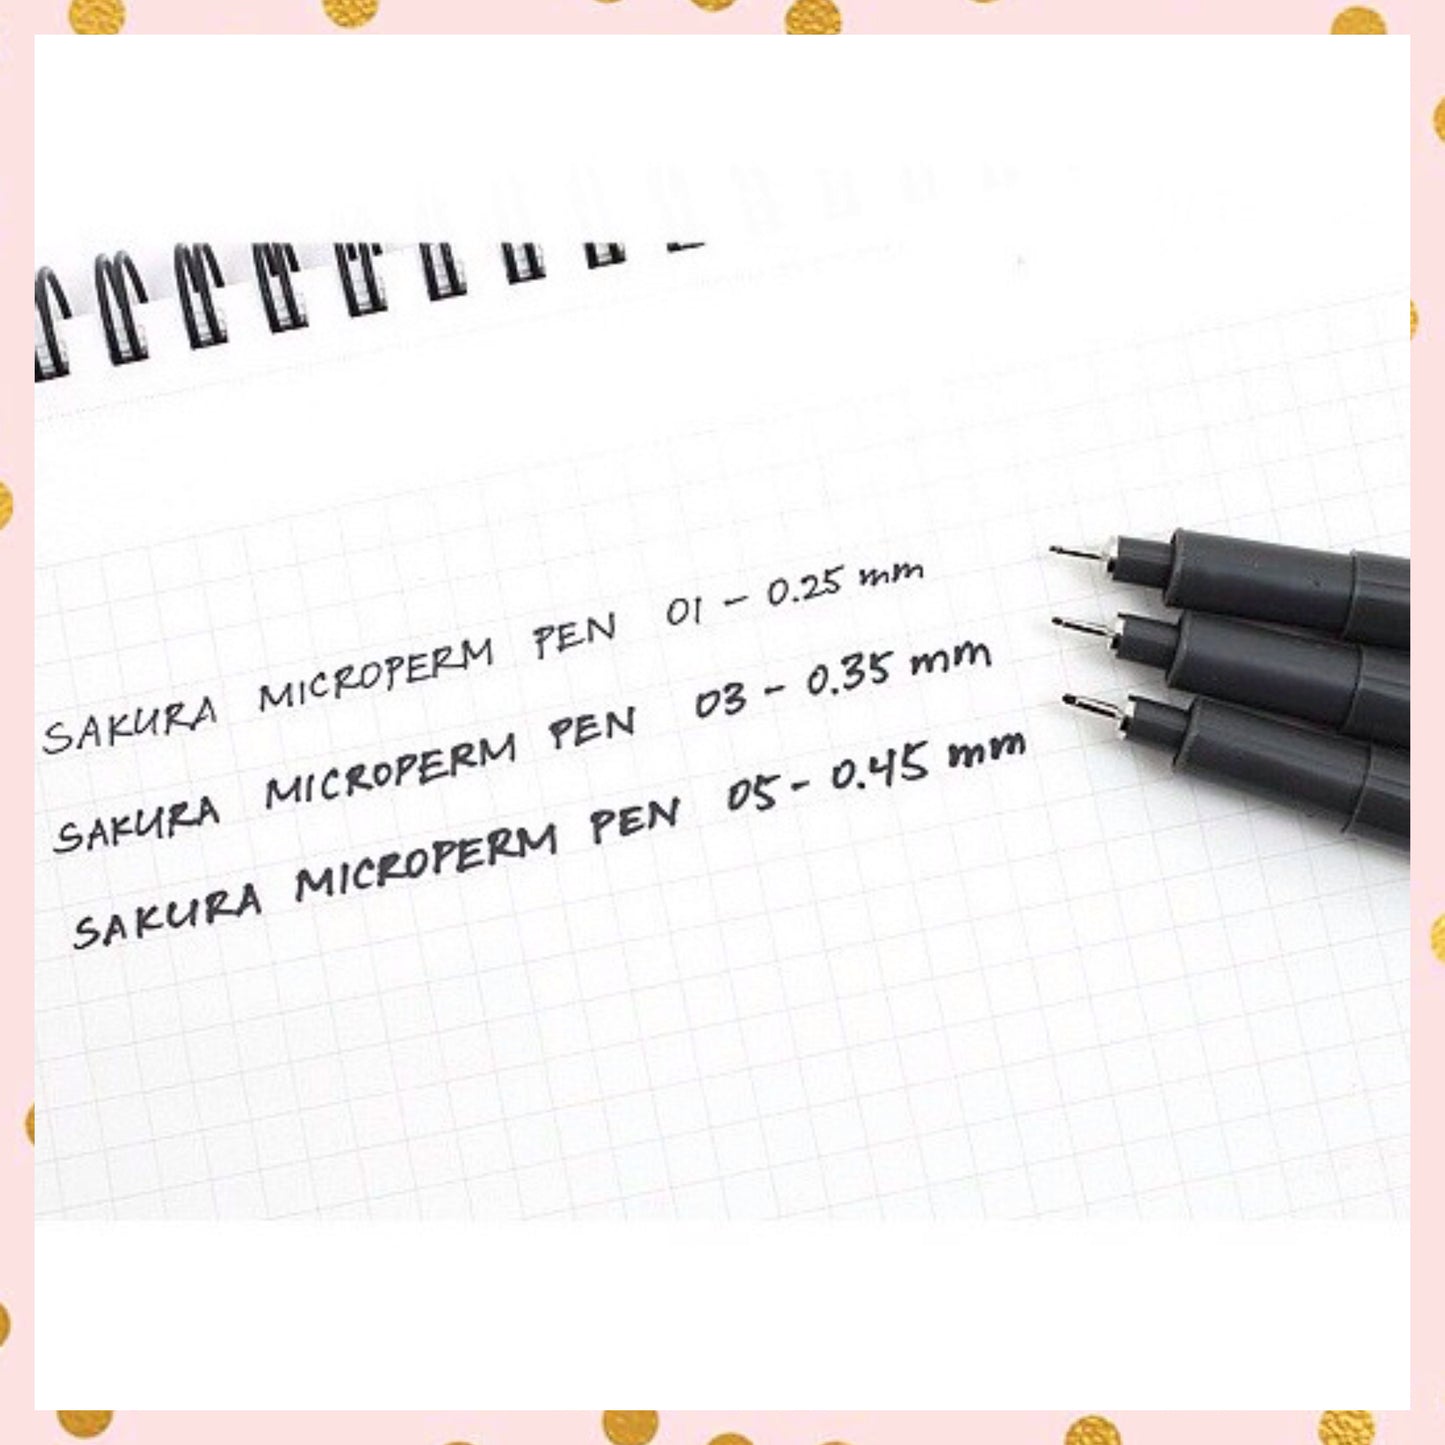 SAKURA MICROPERM PEN 01 - 0.25 mm
SAKURA MICROPERM PEN 03 - 0.35 mm
SAKURA MICROPERM PEN 05 - 0.45 mm